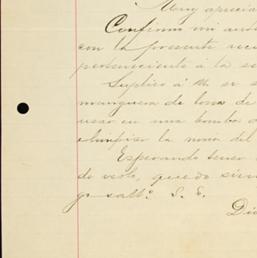 Muy aprecia
Confirmo mi an
con la presente rec
perteneciente á la s
Suplico á U. se s
manguera de lona de
usar en una bomba d
limpiar la noria del
Esperando tener
de verlo, quedo sien
S. S.
Di